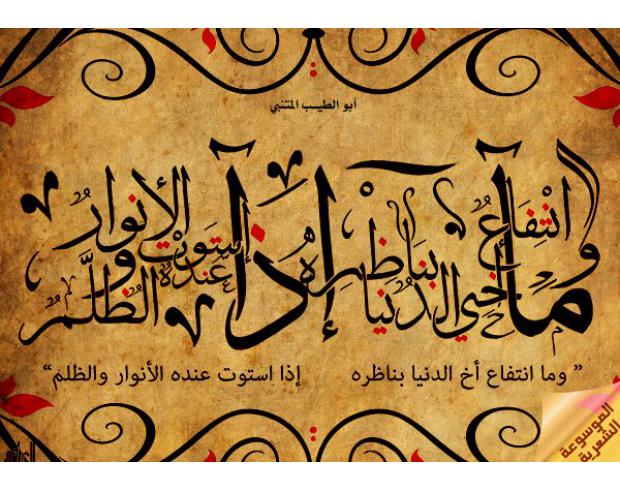 أبو الطيب المتنبي
وَما انْتِفَاعُ أخي الدُنيَا بنَاظِرِهِ إذَا استَوَتْ عِندَهُ الأنوارُ والظُلَمُ
” وما انتفاع أخ الدنيا بناظره إذا استوت عنده الأنوار والظلم“
الموسوعة
الشعرية